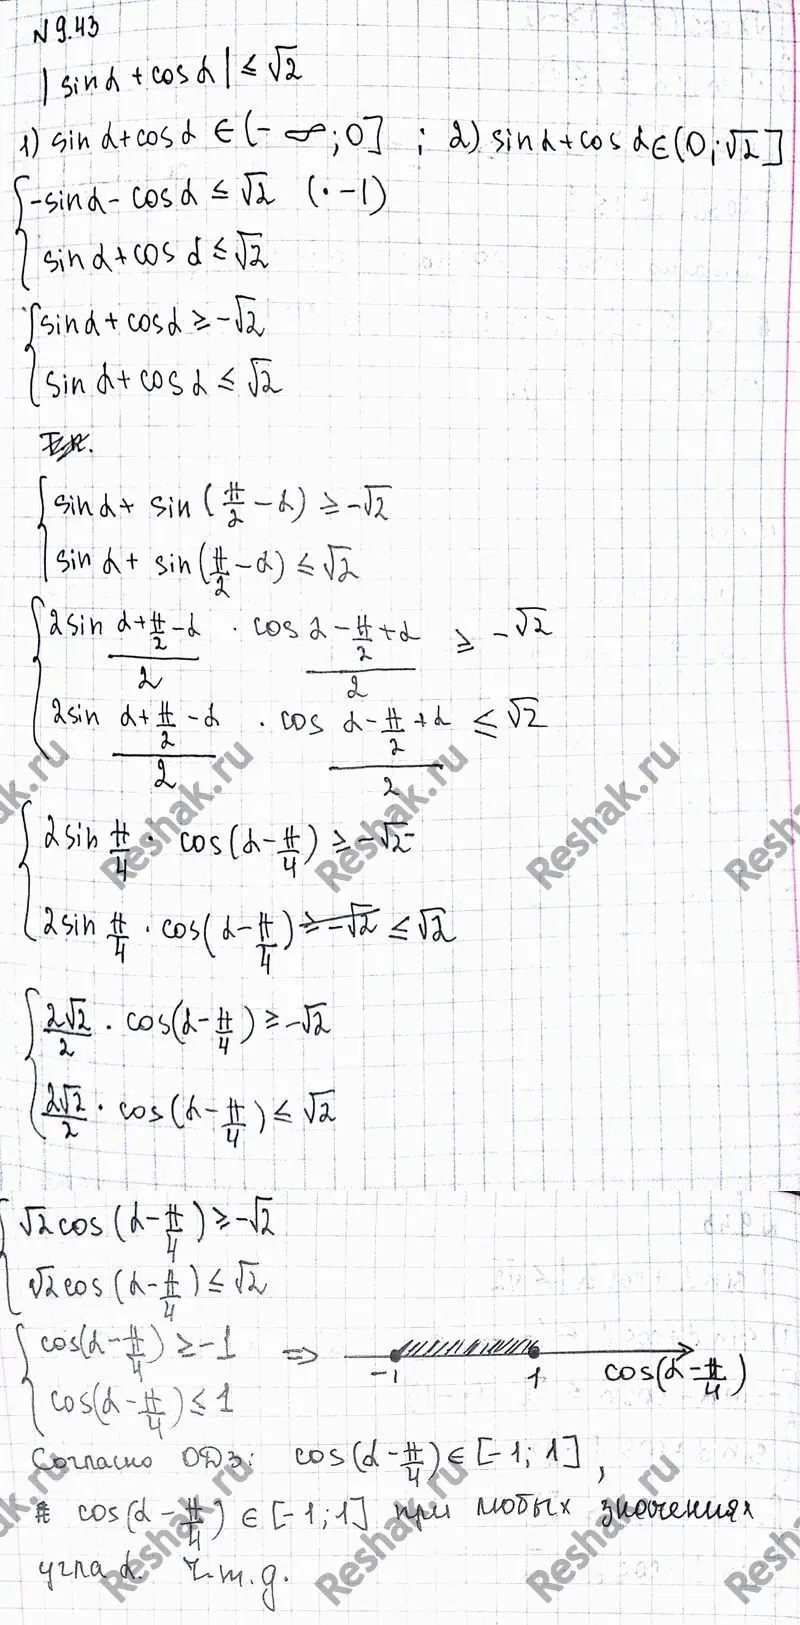 N 9.43
|sinα + cosα| ≤ √2
1) sinα + cosα ∈ (-∞; 0] ; 2) sinα + cosα ∈ (0; √2]
{ -sinα - cosα ≤ √2 (· -1)
sinα + cosα ≤ √2
{ sinα + cosα ≥ -√2
sinα + cosα ≤ √2
{ sinα + sin(π/2 - α) ≥ -√2
sinα + sin(π/2 - α) ≤ √2
{ 2sin (α + π/2 - α)/2 · cos (α - π/2 + α)/2 ≥ -√2
2sin (α + π/2 - α)/2 · cos (α - π/2 + α)/2 ≤ √2
{ 2sin π/4 · cos(α - π/4) ≥ -√2
2sin π/4 · cos(α - π/4) ≥ -√2 ≤ √2
{ 2√2/2 · cos(α - π/4) ≥ -√2
2√2/2 · cos(α - π/4) ≤ √2
{ √2 cos(α - π/4) ≥ -√2
√2 cos(α - π/4) ≤ √2
{ cos(α - π/4) ≥ -1 ⇒ -1 1 cos(α - π/4)
cos(α - π/4) ≤ 1
Согласно ОДЗ: cos(α - π/4) ∈ [-1; 1],
cos(α - π/4) ∈ [-1; 1] при любых значениях
угла α. Ч.т.д.
Reshak.ru
Reshak.ru
Reshak.ru
Reshak.ru
Reshak.ru
Reshak.ru